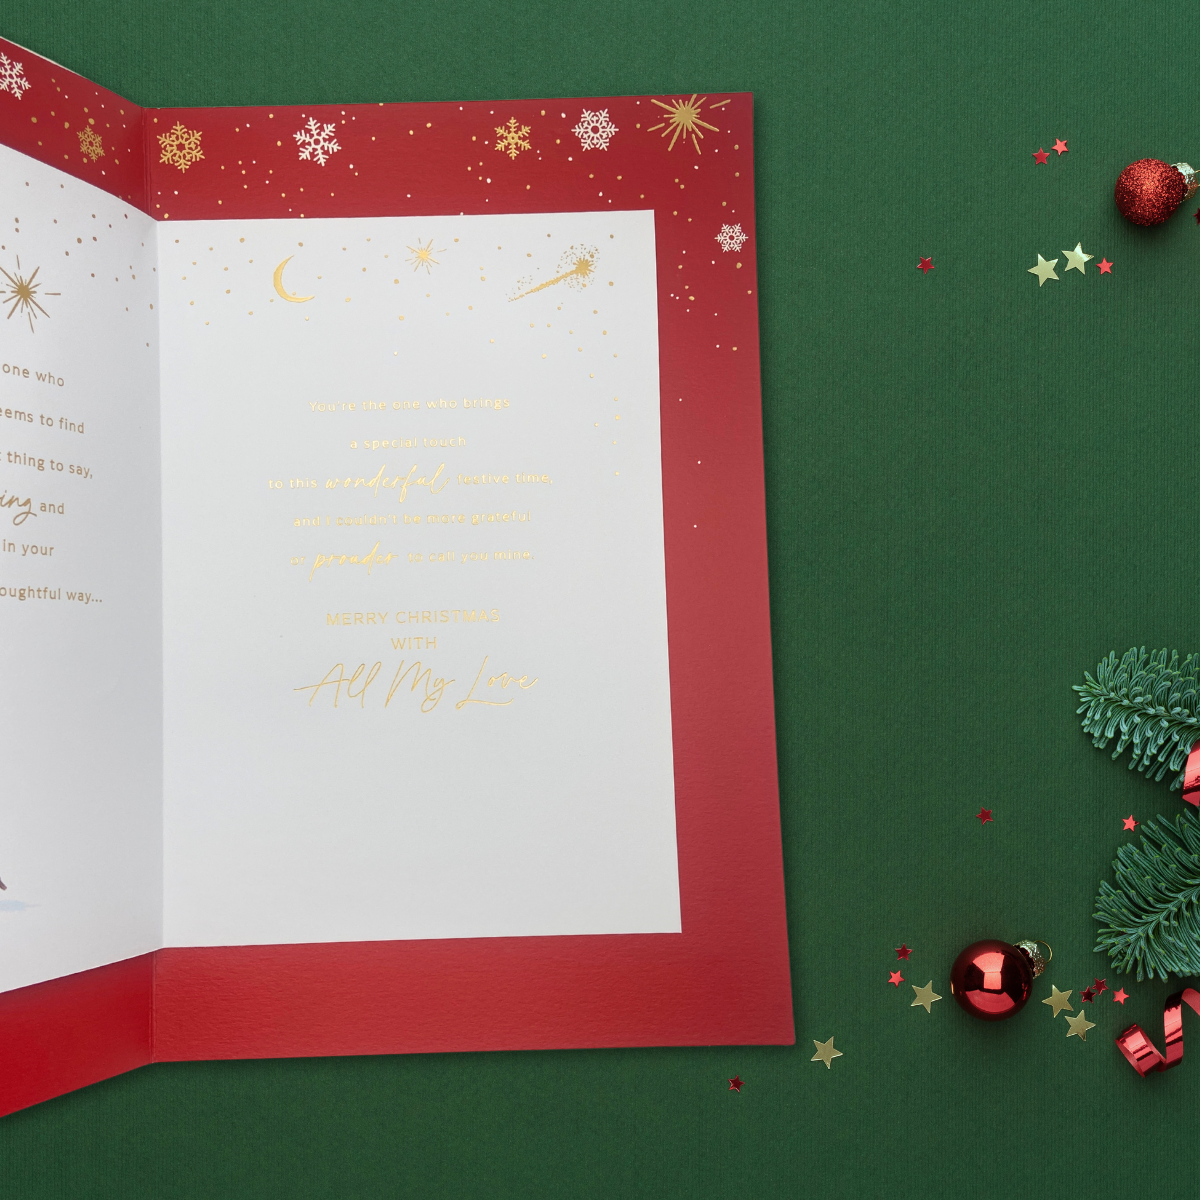 one who
eems to find
t thing to say,
ing and
in your
oughtful way...
You're the one who brings
a special touch
to this wonderful, festive time,
and I couldn't be more grateful
or prouder to call you mine.
MERRY CHRISTMAS
WITH
All My Love